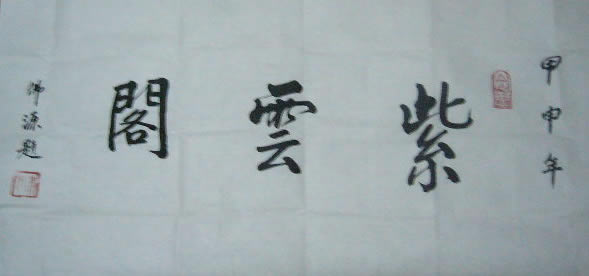 甲申年
紫雲閣
佛源題